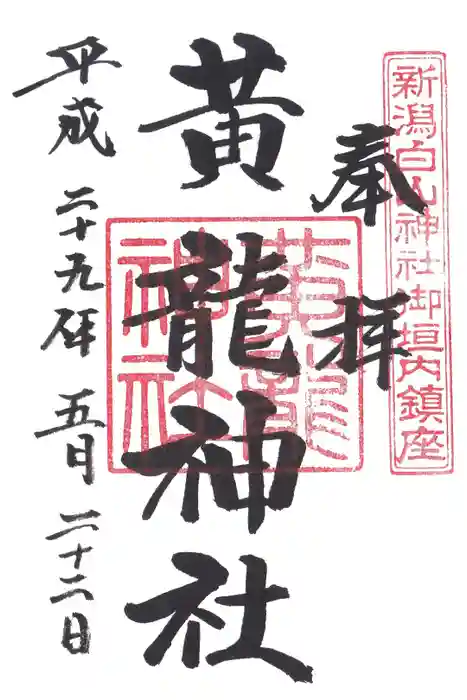 新潟白山神社御垣内鎮座
奉拝
黄龍神社
黄龍
神社
平成二十九年五月二十二日